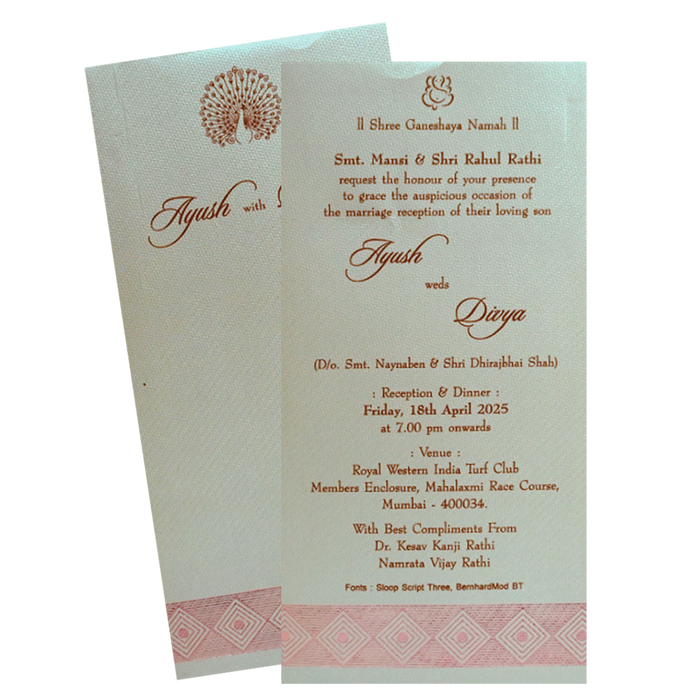 Ayush with
ll Shree Ganeshaya Namah ll
Smt. Mansi & Shri Rahul Rathi
request the honour of your presence
to grace the auspicious occasion of
the marriage reception of their loving son
Ayush
weds
Divya
(D/o. Smt. Naynaben & Shri Dhirajbhai Shah)
: Reception & Dinner :
Friday, 18th April 2025
at 7.00 pm onwards
: Venue :
Royal Western India Turf Club
Members Enclosure, Mahalaxmi Race Course,
Mumbai - 400034.
With Best Compliments From
Dr. Kesav Kanji Rathi
Namrata Vijay Rathi
Fonts : Sloop Script Three, BernhardMod BT